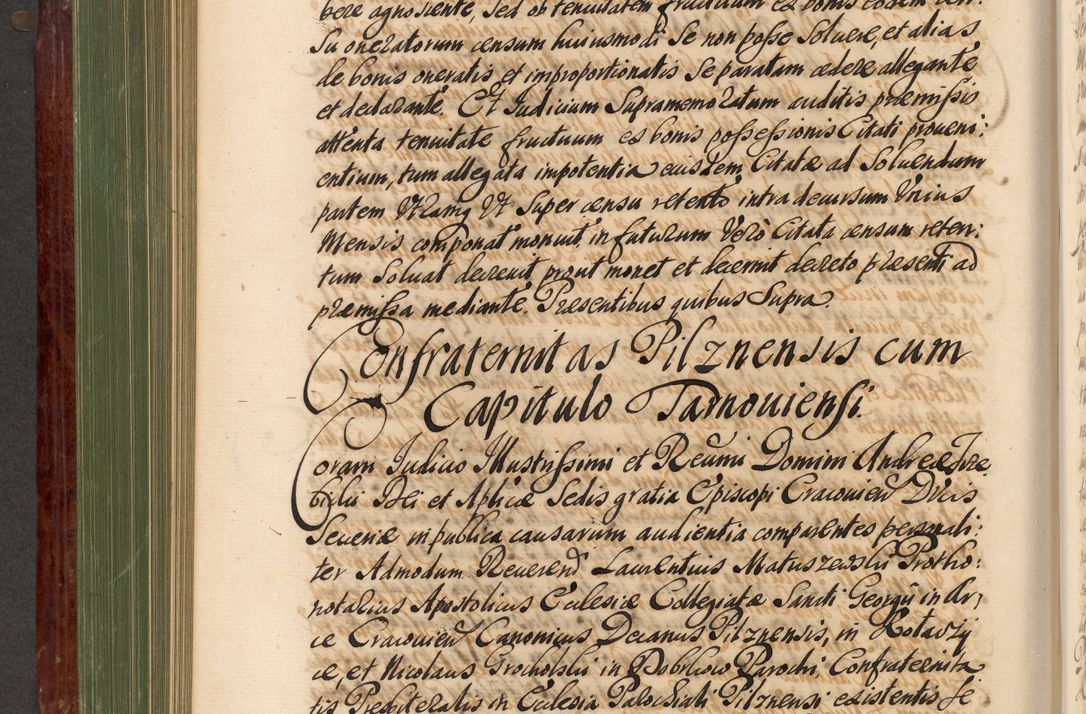 bere agnoscente, sed ob tenuitatem fructuum ex bonis eosdem
su oneratorum censum huiusmodi se non posse soluere, et alias
de bonis oneratis et improportionatis se paratam cedere allegante
et declarante. Et Iudicium supramemoratum auditis præmissis
attenta tenuitate fructuum ex bonis possessionis Citati proueni:
entium, tum allegata impotentia eiusdem Citatæ ad soluendum
partem utramq ut super censu retento intra decursum Vnius
Mensis componat monuit, in futurum Verò Citata censum reten:
tum soluat decreuit prout monet et decernit decreto præsenti ad
præmissa mediante. Præsentibus quibus supra
Confraternitas Pilznensis cum
Capitulo Tarnouiensi.
Coram Iudicio Illustrissimi et Reumi Domini Andreæ Trze
bicki Dei et Aplicæ Sedis gratia Episcopi Cracouien Ducis
Seueriæ in publica causarum audientia comparentes personali:
ter Admodum Reuerend Laurentius Matuszewski Protho:
notarius Apostolicus Ecclesiæ Collegiatæ Sancti Georgii in Ar,
ce Cracouien Canonicus Decanus Pilznensis, in Kołaczy
ce, et Nicolaus Grocholski in Dobrkow Parochi, Confraternita
tis Presbiteralis in Ecclesia Parochiali Pilznensi existentis se